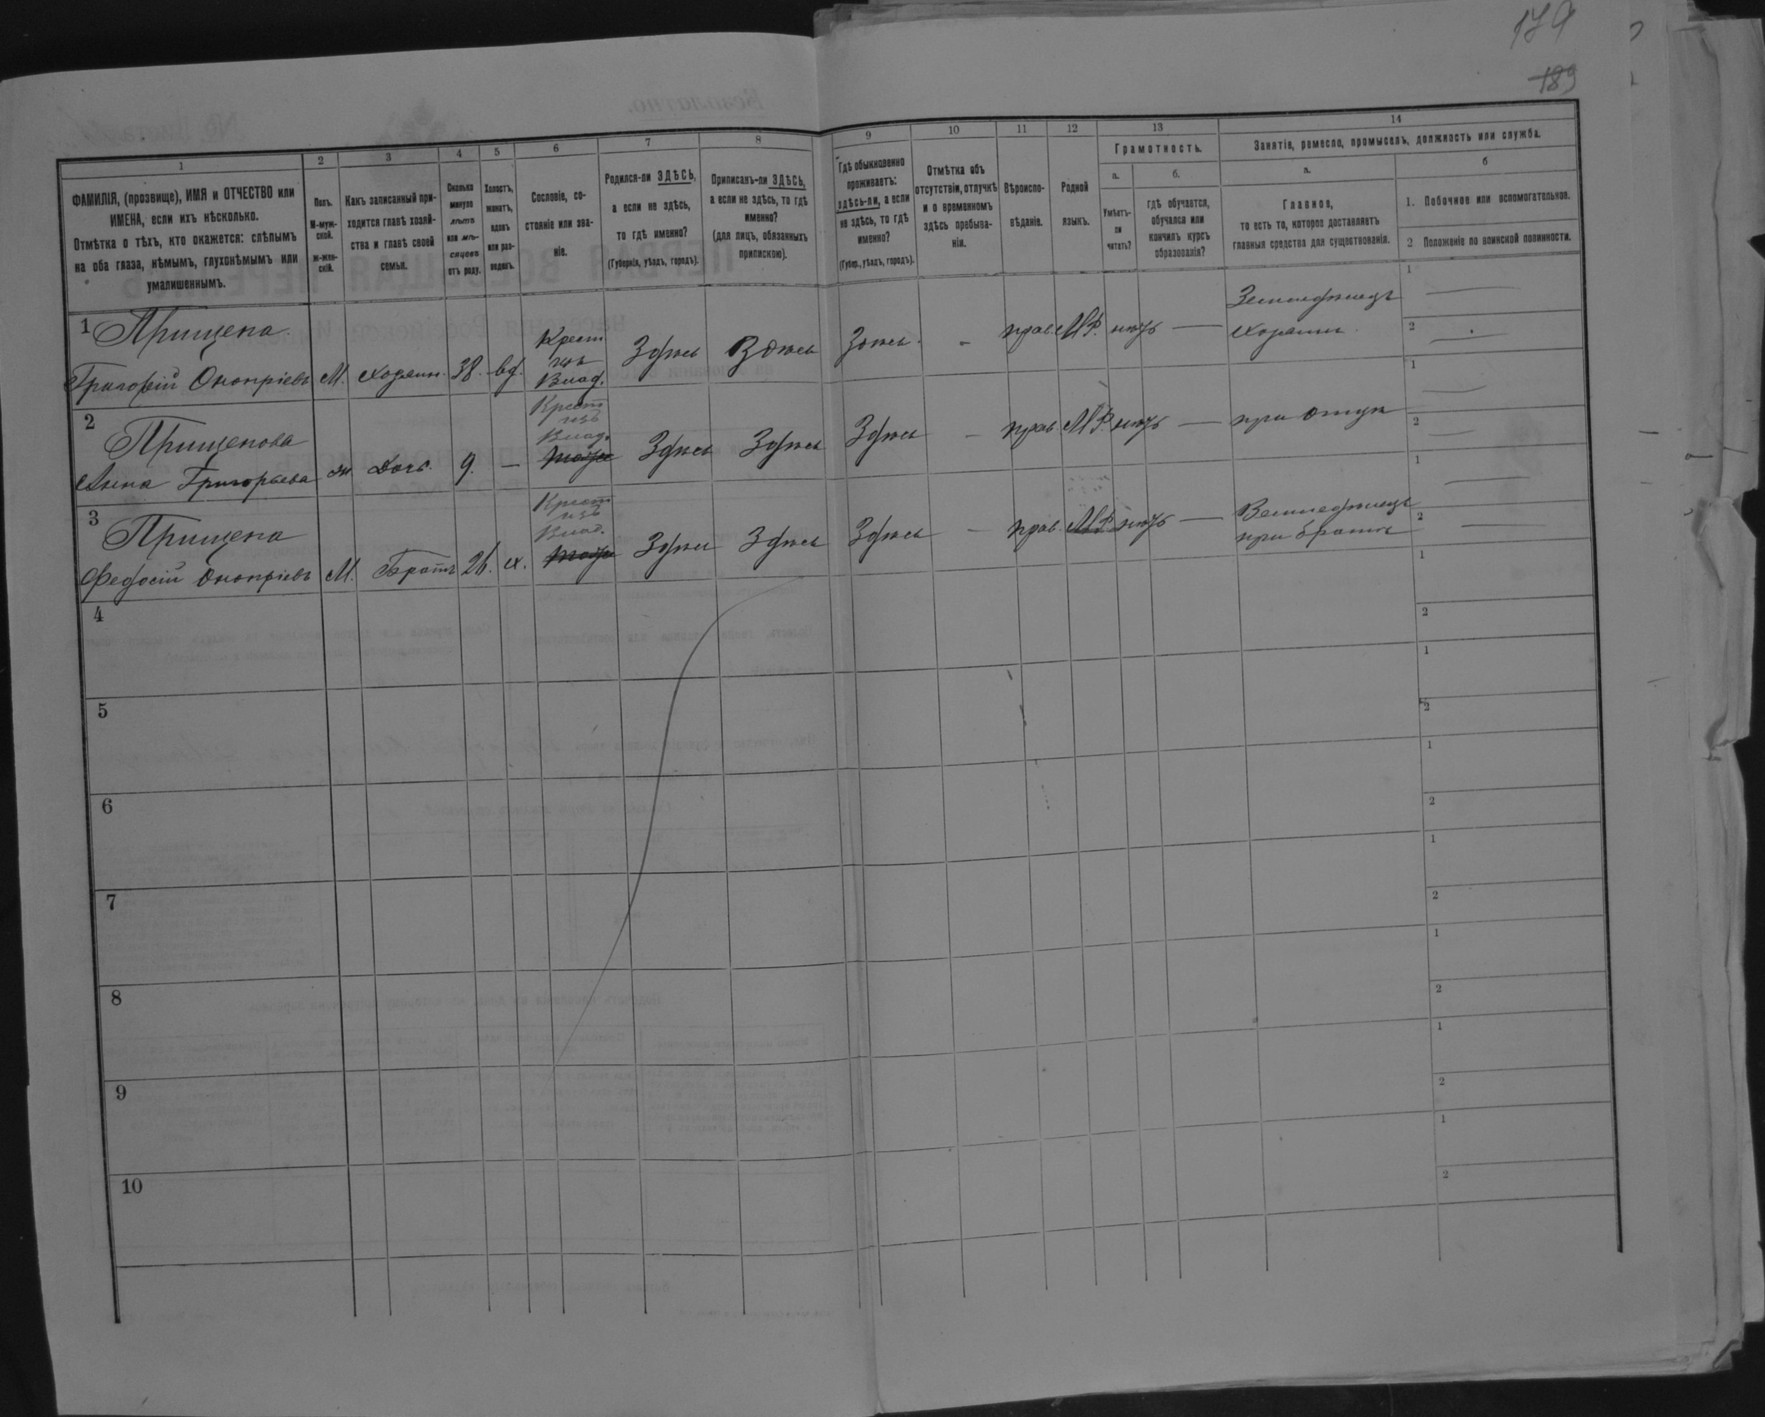 179
189
1
2
3
4
5
6
7
8
9
10
11
12
13
14
ФАМИЛІЯ, (прозвище), ИМЯ и ОТЧЕСТВО или
ИМЕНА, если ихъ нѣсколько.
Отмѣтка о тѣхъ, кто окажется: слѣпымъ
на оба глаза, нѣмымъ, глухонѣмымъ или
умалишеннымъ.
Полъ.
М-муж-
ской.
Ж-жен-
скій.
Какъ записанный при-
ходится главѣ хозяй-
ства и главѣ своей
семьи.
Сколько
минуло
лѣтъ
или мѣ-
сяцевъ
отъ роду.
Холостъ,
женатъ,
вдовъ
или раз-
веденъ.
Сословіе, со-
стояніе или зва-
ніе.
Родился-ли ЗДѢСЬ,
а если не здѣсь,
то гдѣ именно?
(Губернія, уѣздъ, городъ).
Приписанъ-ли ЗДѢСЬ,
а если не здѣсь, то гдѣ
именно?
(для лицъ, обязанныхъ
припискою).
Гдѣ обыкновенно
проживаетъ:
здѣсь-ли, а если
не здѣсь, то гдѣ
именно?
(Губер., уѣздъ, городъ).
Отмѣтка объ
отсутствіи, отлучкѣ
и о временномъ
здѣсь пребыва-
ніи.
Вѣроиспо-
вѣданіе.
Родной
языкъ.
Грамотность.
а.
Умѣетъ-
ли
читать?
б.
гдѣ обучается,
обучался или
кончилъ курсъ
образованія?
Занятія, ремесло, промыселъ, должность или служба.
а.
Главное,
то есть то, которое доставляетъ
главныя средства для существованія.
б
1. Побочное или вспомогательное.
2 Положеніе по воинской повинности.
1 Прищепа
Григорій Оноприевъ М. хозяин. 38. вд. Крест изъ Влад. Здѣсь Здѣсь Здѣсь - прав. МР. нѣтъ — Земледѣлецъ хозяинъ 1 — 2 —
2 Прищепова
Анна Григорьева ж дочь. 9. — Крест изъ Влад. Здѣсь Здѣсь Здѣсь - прав. МР. нѣтъ — при отцѣ 1 — 2 —
3 Прищепа
Федосій Оноприевъ М. Братъ 26. х. Крест изъ Влад. Здѣсь Здѣсь Здѣсь - прав. МР. нѣтъ — Земледѣлецъ при братѣ 1 — 2 —
4 1 2
5 1 2
6 1 2
7 1 2
8 1 2
9 1 2
10 1 2